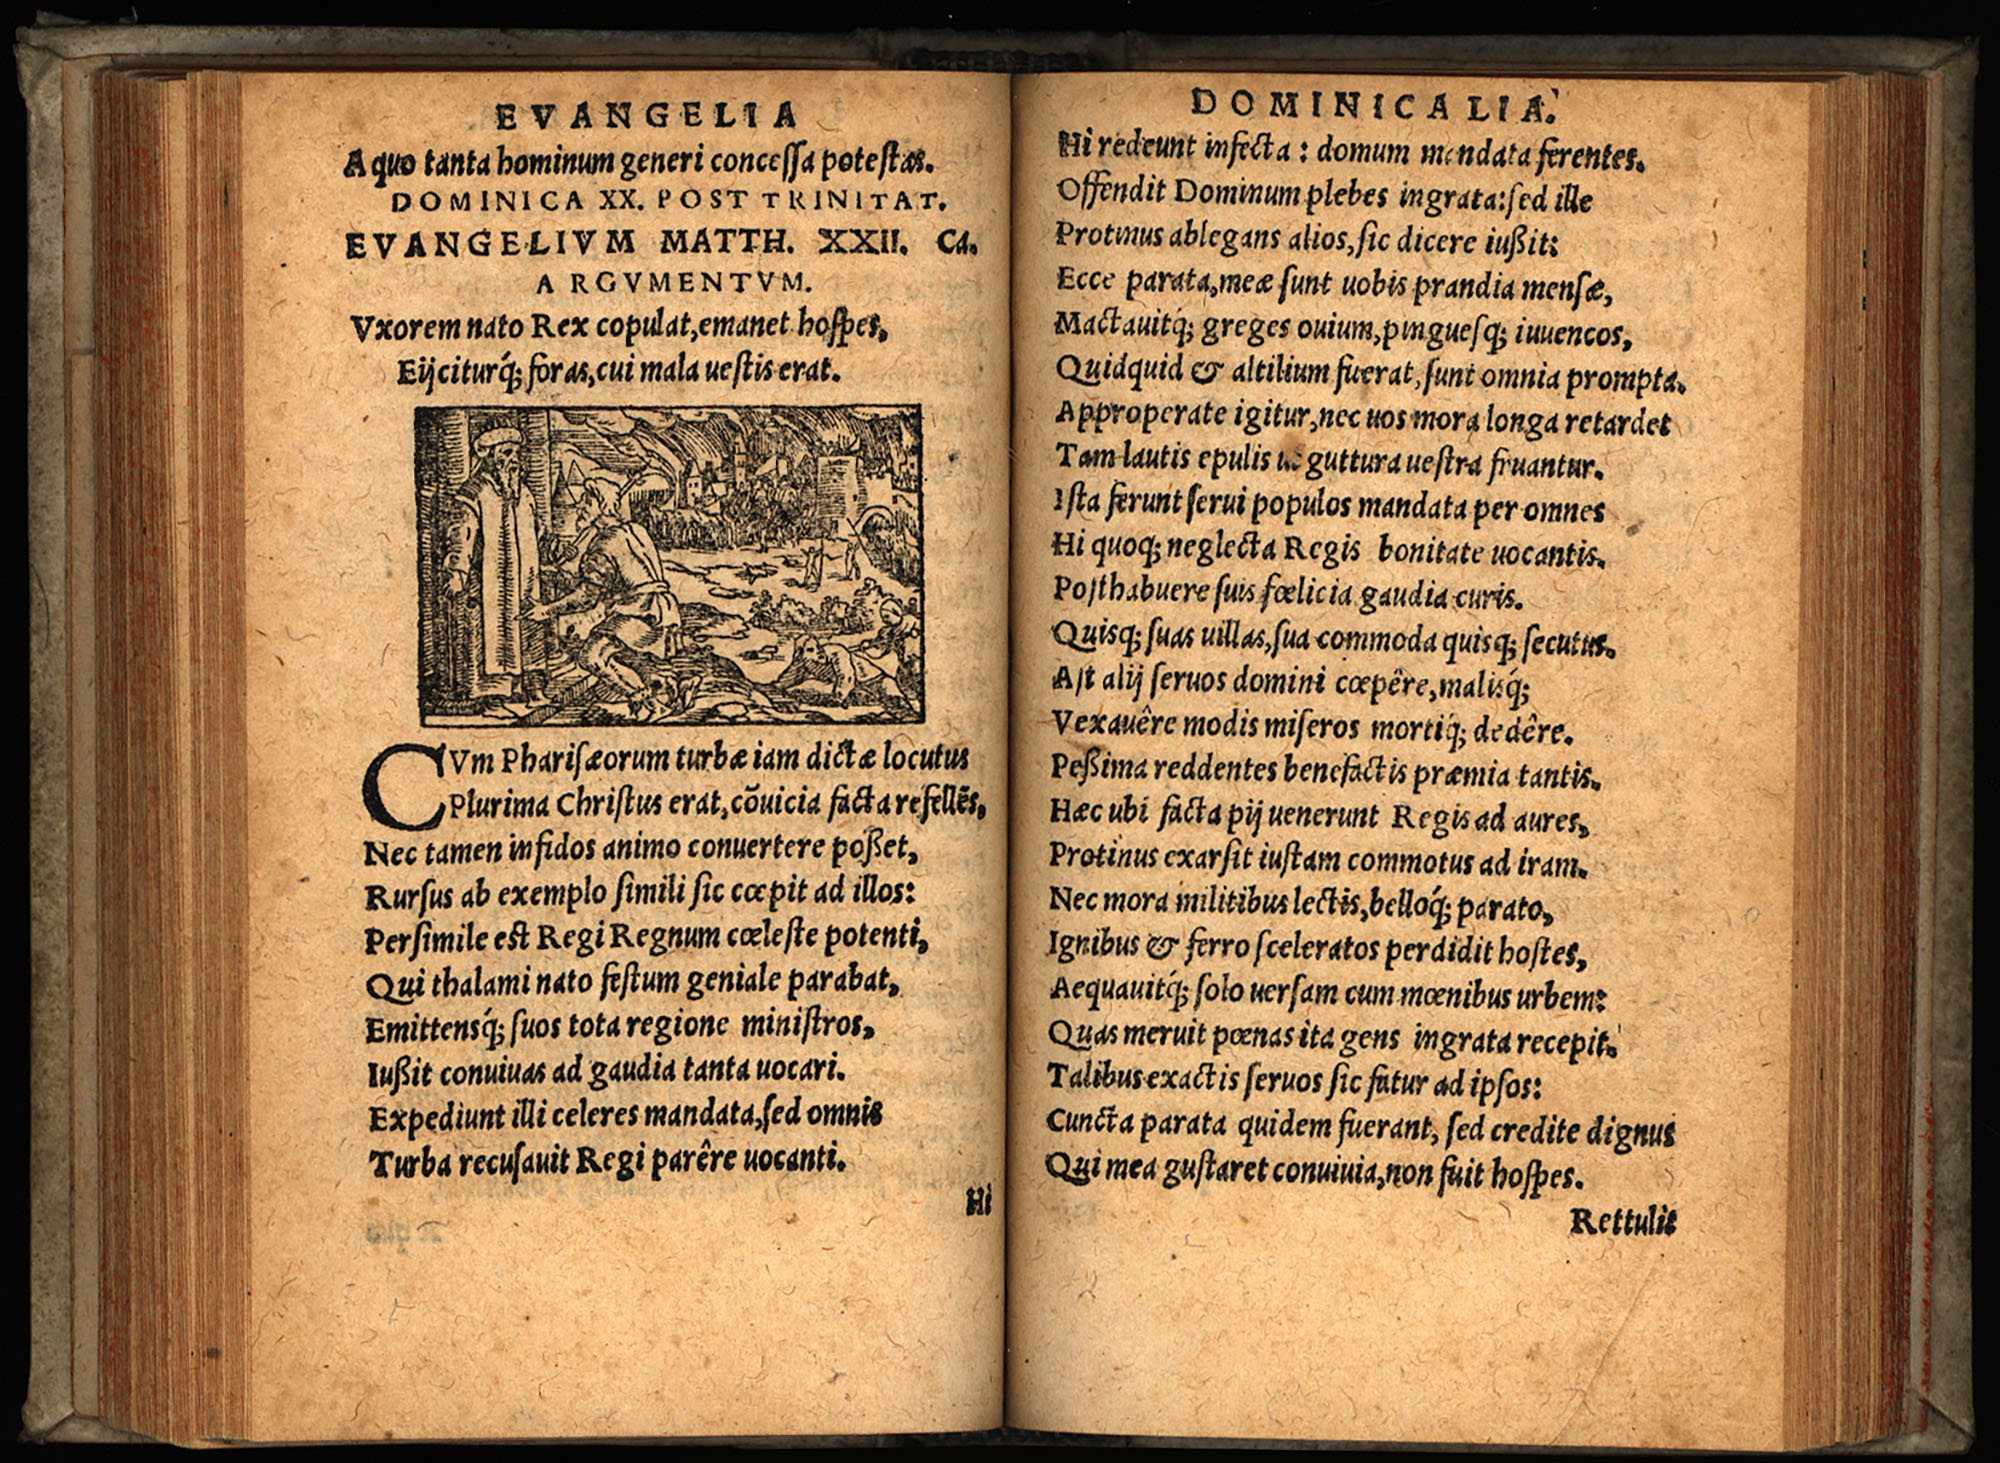 EVANGELIA
A quo tanta hominum generi concessa potestas.
DOMINICA XX. POST TRINITAT.
EVANGELIVM MATTH. XXII. Ca.
ARGVMENTVM.
Vxorem nato Rex copulat, emanet hospes,
Eijciturq́; foras, cui mala uestis erat.
CVm Pharisæorum turbæ iam dictæ locutus
Plurima Christus erat, cõuicia facta refellẽs,
Nec tamen infidos animo conuertere poßet,
Rursus ab exemplo simili sic cœpit ad illos:
Persimile est Regi Regnum cœleste potenti,
Qui thalami nato festum geniale parabat,
Emittensq́; suos tota regione ministros,
Iußit conuiuas ad gaudia tanta uocari.
Expediunt illi celeres mandata, sed omnis
Turba recusauit Regi parêre uocanti.
Hi
DOMINICALIA.
Hi redeunt infecta: domum mandata ferentes.
Offendit Dominum plebes ingrata: sed ille
Protinus ablegans alios, sic dicere iußit:
Ecce parata, meæ sunt uobis prandia mensæ,
Mactauitq́; greges ouium, pinguesq; iuuencos,
Quidquid & altilium fuerat, sunt omnia prompta.
Approperate igitur, nec uos mora longa retardet
Tam lautis epulis guttura uestra fruantur.
Ista ferunt serui populos mandata per omnes
Hi quoq; neglecta Regis bonitate uocantis.
Posthabuere suis fœlicia gaudia curis.
Quisq; suas uillas, sua commoda quisq; secutus.
Ast alij seruos domini cœpêre, malisq́;
Vexauêre modis miseros mortiq́; dedêre.
Peßima reddentes benefactis præmia tantis.
Hæc ubi facta pij uenerunt Regis ad aures,
Protinus exarsit iustam commotus ad iram.
Nec mora militibus lectis, belloq́; parato,
Ignibus & ferro sceleratos perdidit hostes,
Aequauitq́; solo uersam cum mœnibus urbem:
Quas meruit pœnas ita gens ingrata recepit.
Talibus exactis seruos sic fatur ad ipsos:
Cuncta parata quidem fuerant, sed credite dignus
Qui mea gustaret conuiuia, non fuit hospes.
Rettulit